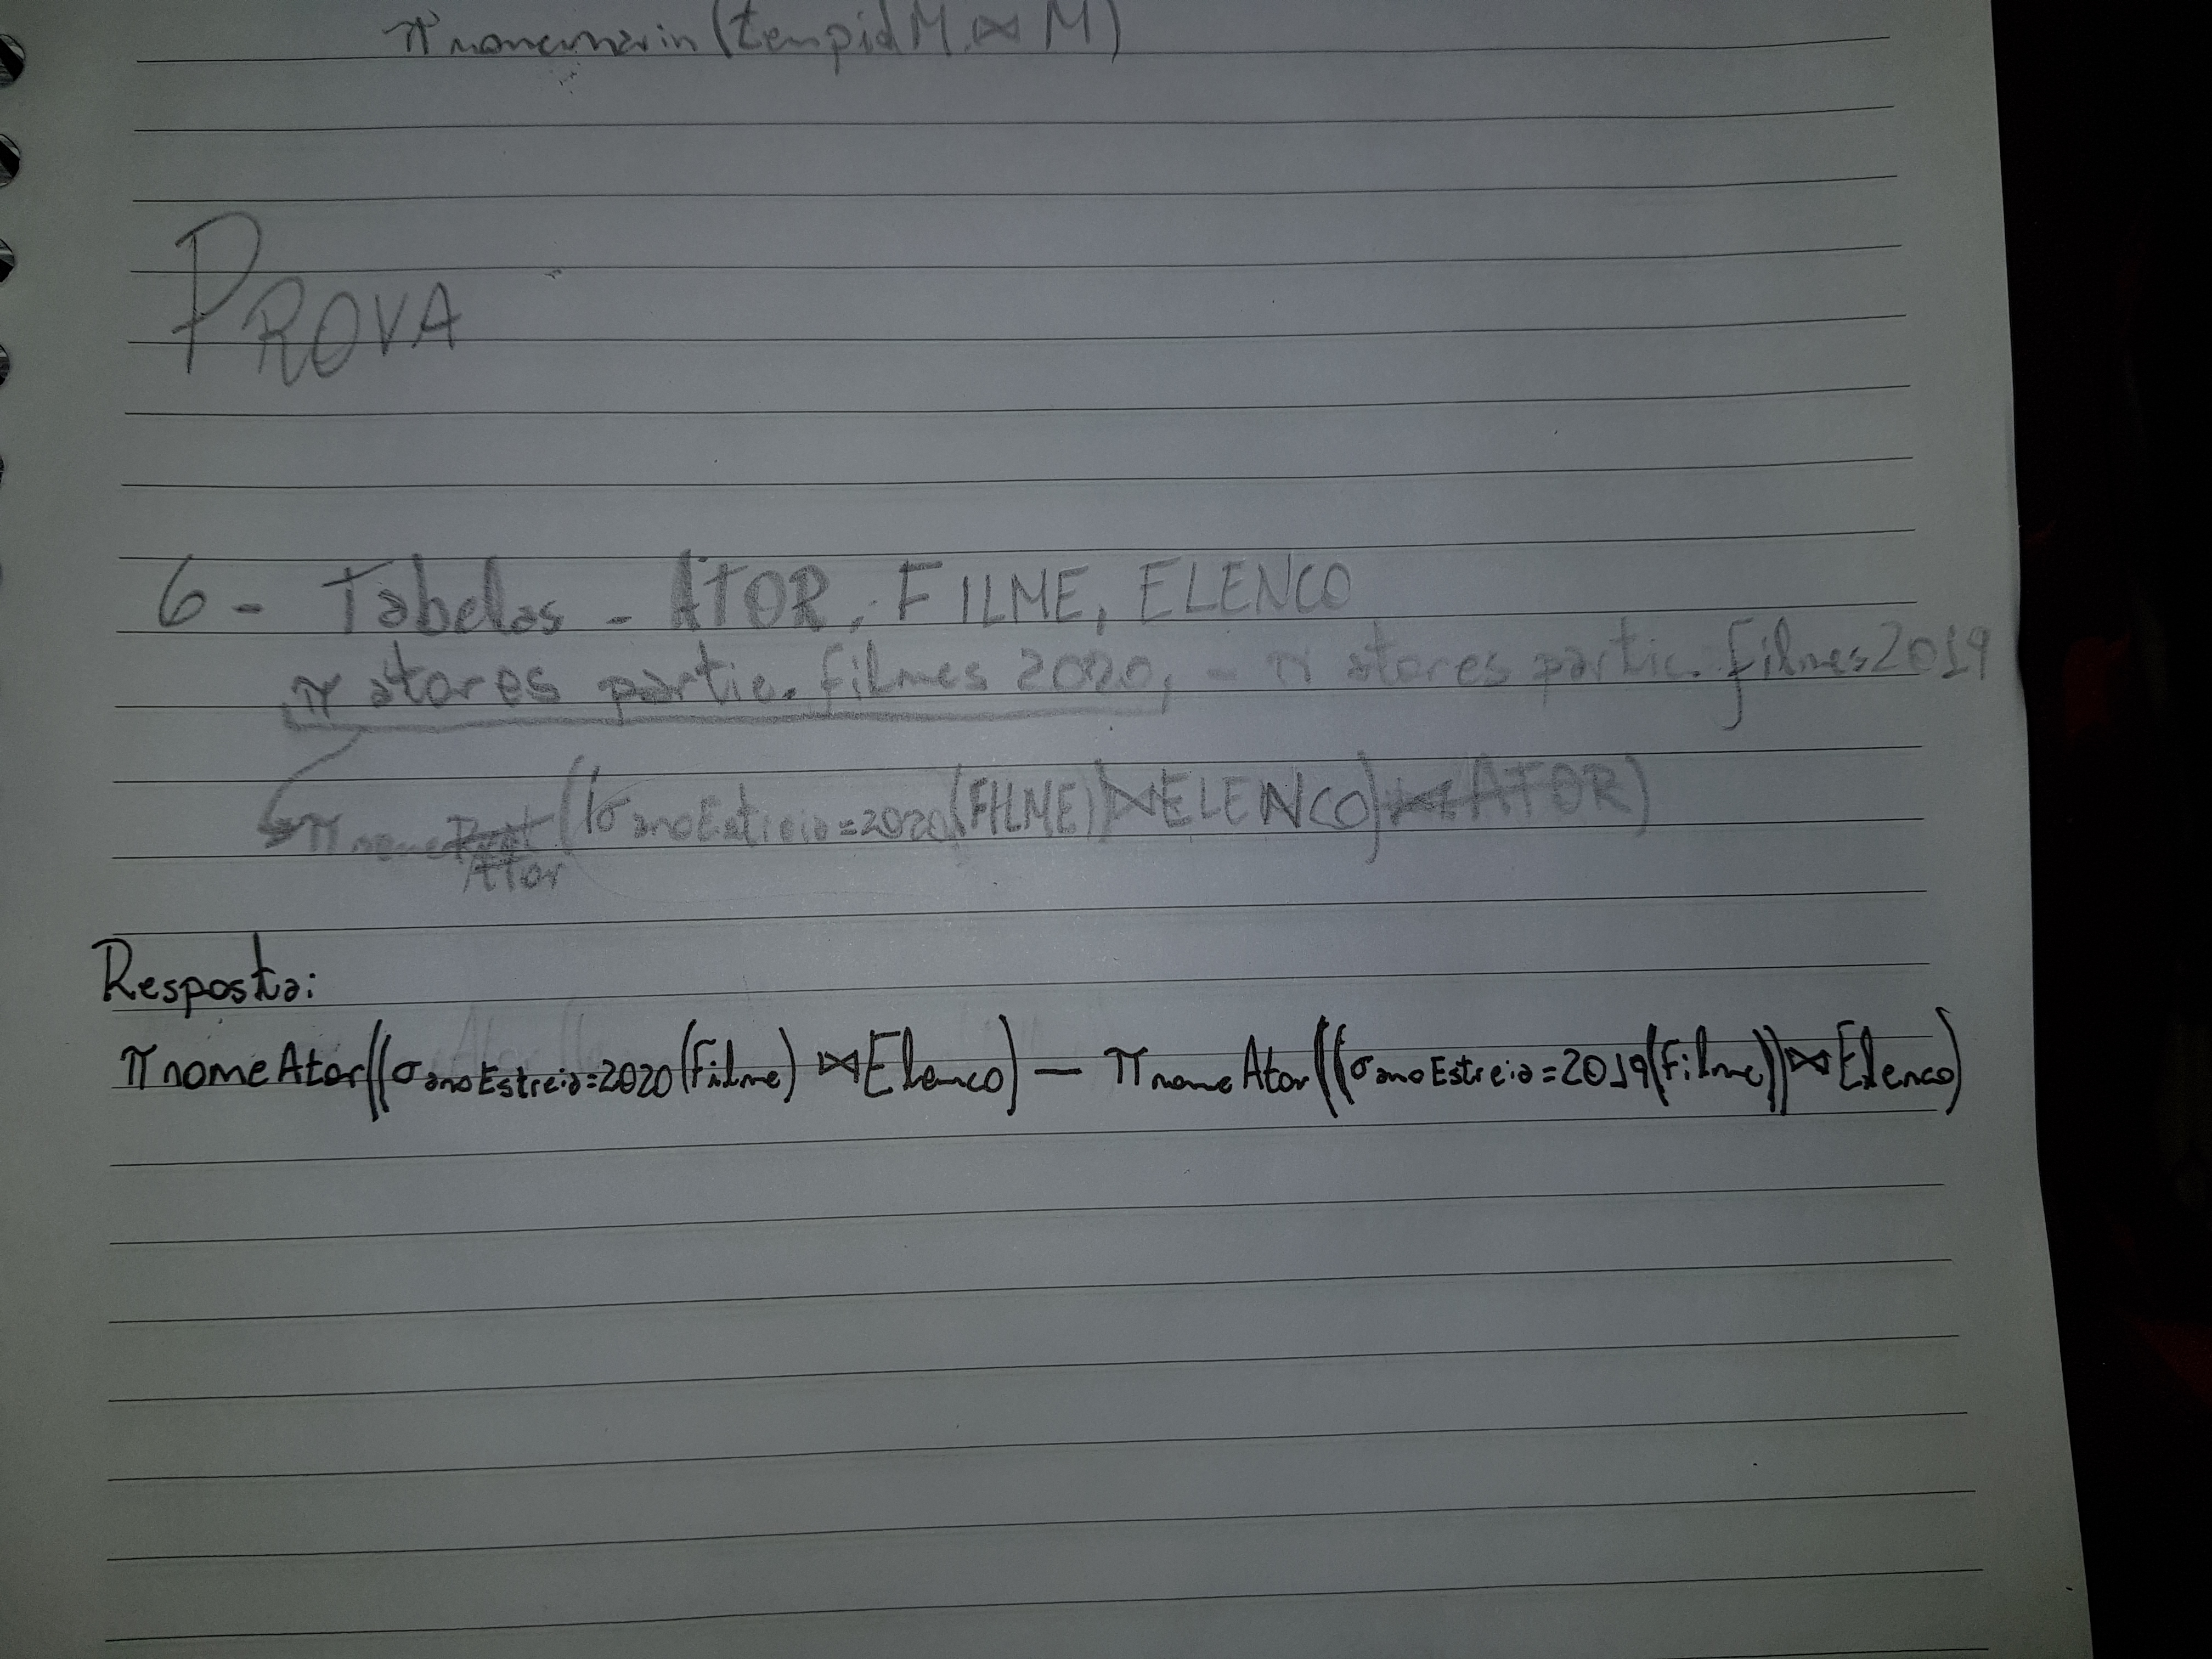 π nomemarin (tempidM ⋈ M)
PROVA
6 - Tabelas - ATOR, FILME, ELENCO
π atores partic. filmes 2020, - π atores partic. filmes 2019
π nome Ator ((σ anoEstreia = 2020 (FILME) ⋈ ELENCO) ⋈ ATOR)
Resposta:
π nomeAtor ((σ anoEstreia = 2020 (Filme) ⋈ Elenco) — π nome Ator ((σ anoEstreia = 2019 (Filme)) ⋈ Elenco)